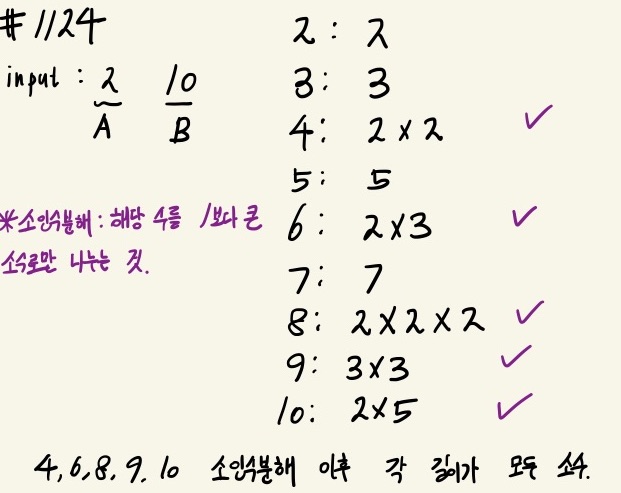 #1124
input : 2 10
A B
※소인수분해 : 해당 수를 1보다 큰
소수로만 나누는 것.
2 : 2
3 : 3
4 : 2 x 2 ✓
5 : 5
6 : 2x3 ✓
7 : 7
8 : 2 x 2 x 2 ✓
9 : 3x3 ✓
10 : 2x5 ✓
4, 6, 8, 9, 10 소인수분해 이후 각 길이가 모두 소수.